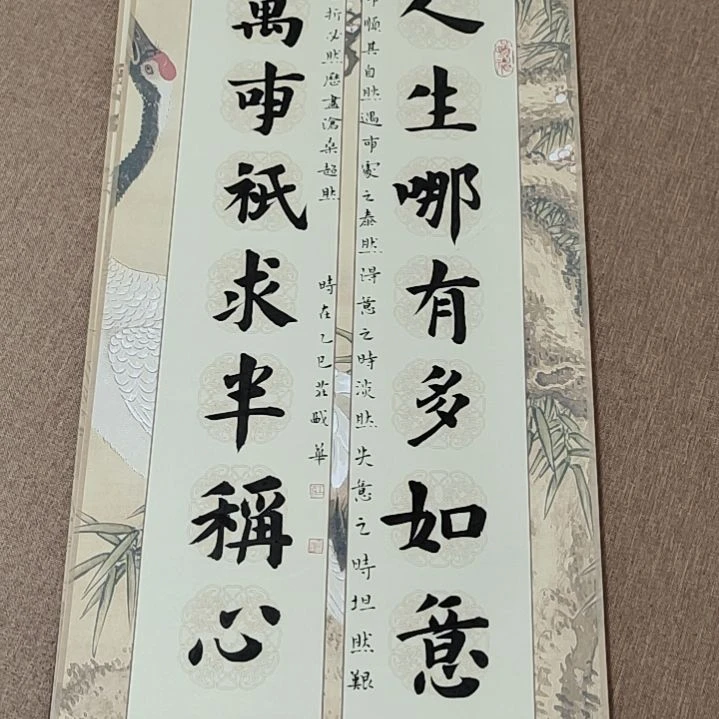 人生哪有多如意
順其自然遇事處之泰然得意之時淡然失意之時坦然艱
萬事祇求半稱心
折必然歷盡滄桑超然
時在乙巳莊戯華